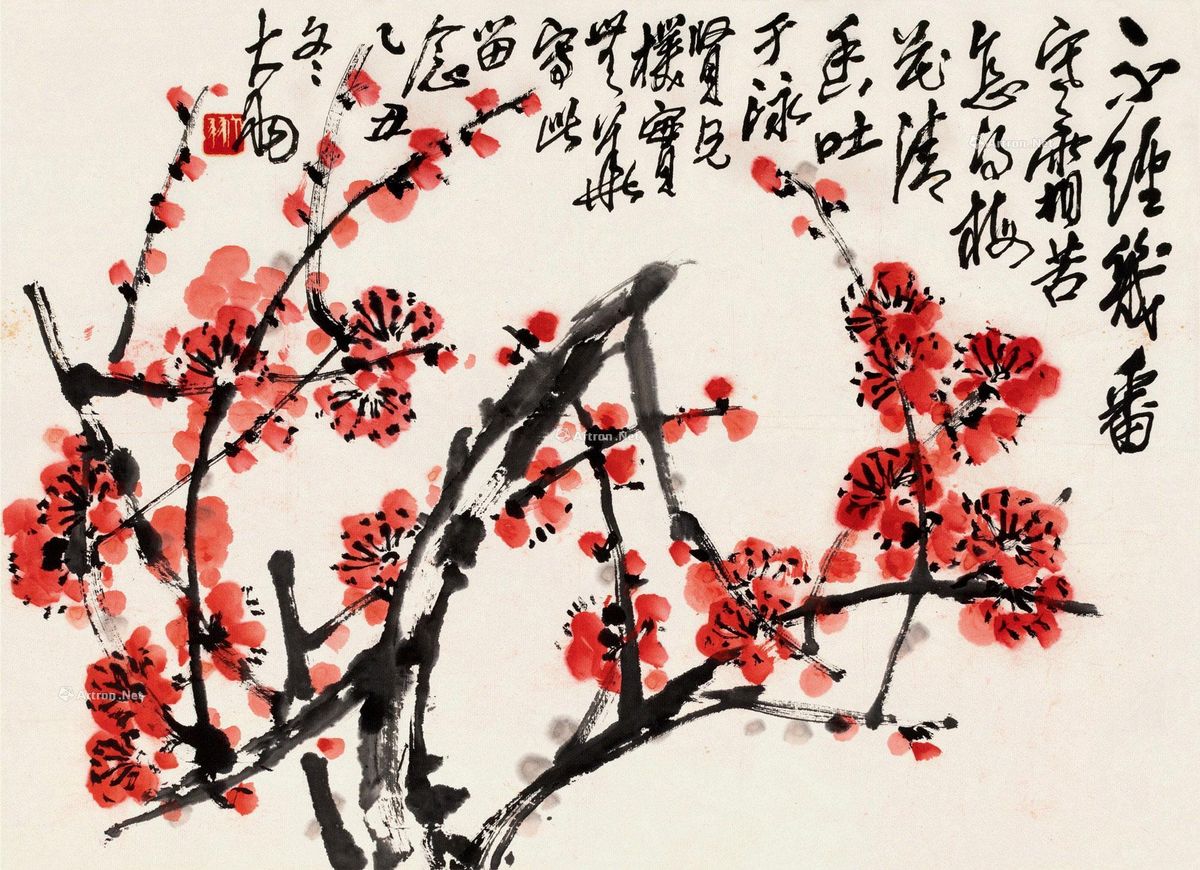 不經幾番
寒霜苦
怎得梅
花清
香吐
于泳
賢兄
樸實
無華
寫此
留
念
乙丑
冬
大羽
Artron.Net
Artron.Net
Artron.Net